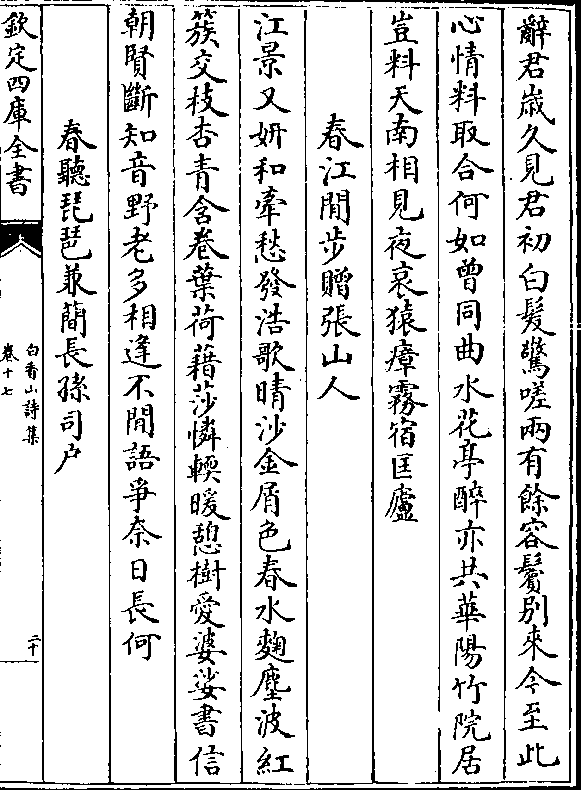 辭君嵗久見君初白髮驚嗟兩有餘容鬢别來今至此
心情料取合何如曾同曲水花亭醉亦共華陽竹院居
豈料天南相見夜哀猿瘴霧宿匡廬
春江閒步贈張山人
江景又妍和牽愁發浩歌晴沙金屑色春水麴塵波紅
簇交枝杏青含卷葉荷藉莎憐輭暖憩樹愛婆娑書信
朝賢斷知音野老多相逢不閒語爭奈日長何
春聽琵琶兼簡長孫司户
欽定四庫全書
白香山詩集
卷十七
二十